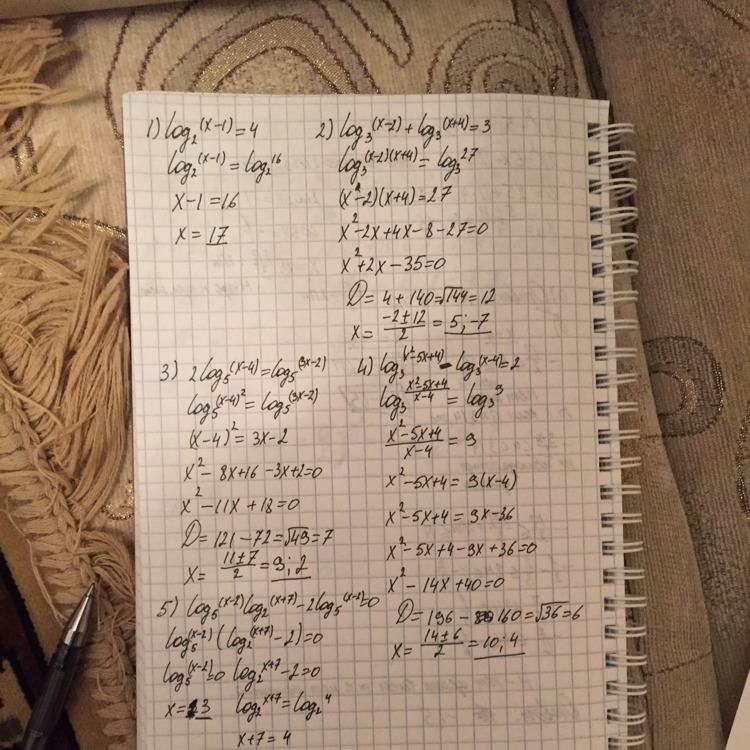 1) log₂(x-1) = 4
log₂(x-1) = log₂16
x-1 = 16
x = 17
2) log₃(x-2) + log₃(x+4) = 3
log₃(x-2)(x+4) = log₃27
(x²-2)(x+4) = 27
x²-2x+4x-8-27=0
x²+2x-35=0
D = 4 + 140 = √144 = 12
x = (-2±12)/2 = 5; -7
3) 2log₅(x-4) = log₅(3x-2)
log₅(x-4)² = log₅(3x-2)
(x-4)² = 3x-2
x² - 8x+16 -3x+2=0
x² -11x + 18 = 0
D = 121 - 72 = √49 = 7
x = (11±7)/2 = 9; 2
4) log₃(x²-5x+4) - log₃(x-4) = 2
log₃(x²-5x+4)/(x-4) = log₃9
(x²-5x+4)/(x-4) = 9
x²-5x+4 = 9(x-4)
x²-5x+4 = 9x-36
x²-5x+4-9x+36=0
x²-14x+40=0
D = 196 - 160 = √36 = 6
x = (14±6)/2 = 10; 4
5) log₅(x-2) log₂(x+7) - 2log₅(x-2) = 0
log₅(x-2) (log₂(x+7) - 2) = 0
log₅(x-2) = 0 log₂x+7 - 2 = 0
x = 3 log₂x+7 = log₂4
x+7 = 4